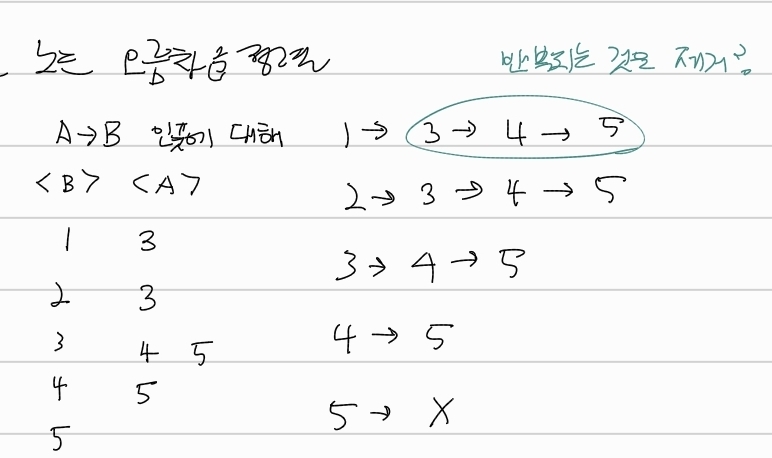 노드 오름차순 정렬
반복되는 것은 제거?
A→B 인풋에 대해
<B> <A>
1 3
2 3
3 4 5
4 5
5
1 → 3 → 4 → 5
2 → 3 → 4 → 5
3 → 4 → 5
4 → 5
5 → X